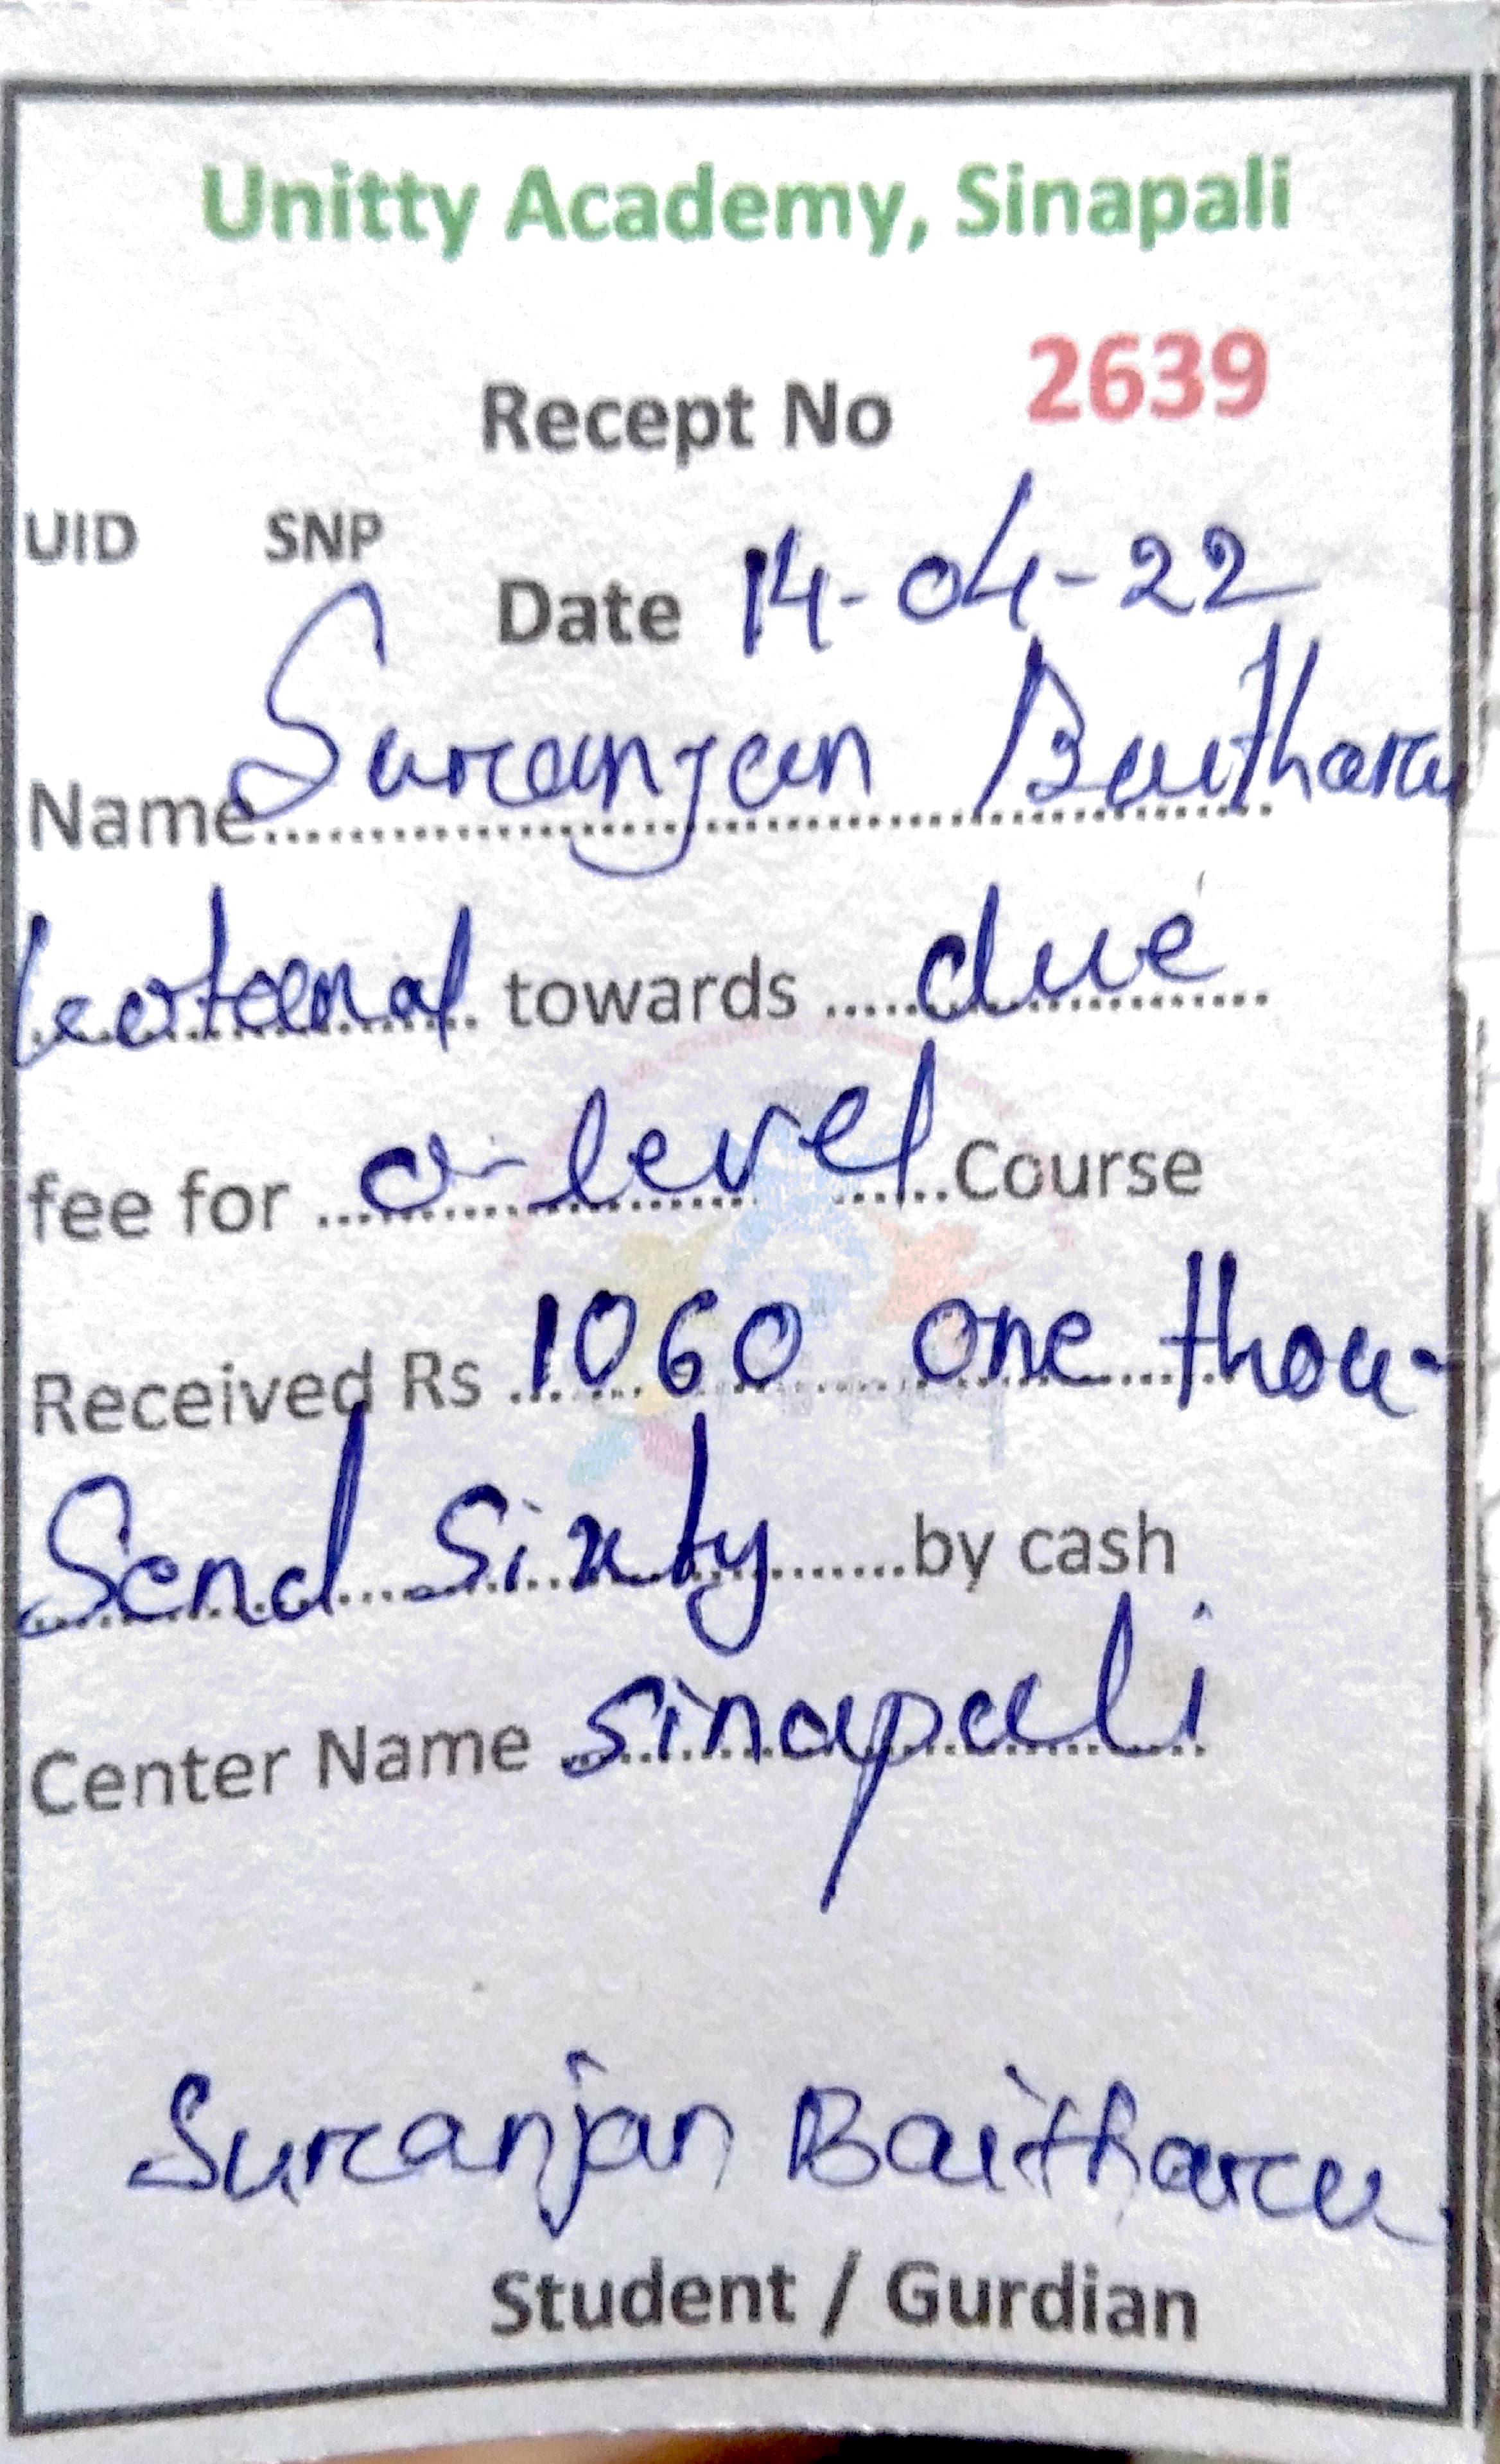 Unitty Academy, Sinapali
Recept No 2639
UID SNP
Date 14-04-22
Name Suranjan Baitharu
towards due
fee for o-level Course
Received Rs 1060 one thou-
Send Sixty by cash
Center Name Sinapali
Suranjan Baitharu
Student / Gurdian